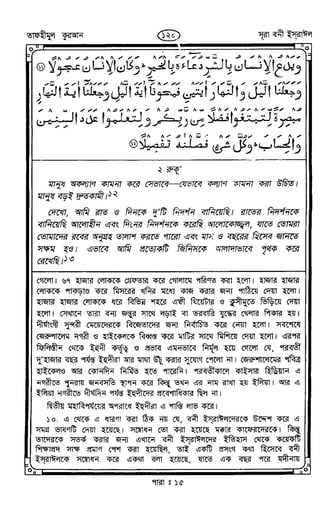 তাফহীমুল কুরআন
১২০
সূরা বনী ইসরাঈল
وَيَدْعُ الْإِنْسَانُ بِالشَّرِّ دُعَاءَهُ بِالْخَيْرِ وَكَانَ الْإِنْسَانُ عَجُولًا ⑪
وَجَعَلْنَا اللَّيْلَ وَالنَّهَارَ آيَتَيْنِ فَمَحَوْنَا آيَةَ اللَّيْلِ وَجَعَلْنَا آيَةَ النَّهَارِ
مُبْصِرَةً لِتَبْتَغُوا فَضْلًا مِنْ رَبِّكُمْ وَلِتَعْلَمُوا عَدَدَ السِّنِينَ
وَالْحِسَابَ وَكُلَّ شَيْءٍ فَصَّلْنَاهُ تَفْصِيلًا ⑫
২ রুকূ'
মানুষ অকল্যাণ কামনা করে সেভাবে—যেভাবে কল্যাণ কামনা করা উচিত।
মানুষ বড়ই দ্রুতকামী।১২
দেখো, আমি রাত ও দিনকে দু'টি নিদর্শন বানিয়েছি। রাতের নিদর্শনকে
বানিয়েছি আলোহীন এবং দিনের নিদর্শনকে করেছি আলোকোজ্জ্বল, যাতে তোমরা
তোমাদের রবের অনুগ্রহ তালাশ করতে পারো এবং মাস ও বছরের হিসেব জানতে
সক্ষম হও। এভাবে আমি প্রত্যেকটি জিনিসকে আলাদাভাবে পৃথক করে
রেখেছি।১৩
গেলো। ৬৭ হাজার লোককে গ্রেফতার করে গোলামে পরিণত করা হলো। হাজার হাজার
লোককে পাকড়াও করে মিসরের খনির মধ্যে কাজ করার জন্য পাঠিয়ে দেয়া হলো।
হাজার হাজার লোককে ধরে বিভিন্ন শহরে এম্ফী থিয়েটার ও ক্লুসীমুতে ভিড়িয়ে দেয়া
হলো। সেখানে তারা বন্য জন্তুর সাথে লড়াই বা তরবারি যুদ্ধের খেলার শিকার হয়।
দীর্ঘাংগী সুন্দরী মেয়েদেরকে বিজেতাদের জন্য নির্বাচিত করে নেয়া হলো। সবশেষে
জেরুশালেম নগরী ও হাইকেলকে বিধ্বস্ত করে মাটির সাথে মিশিয়ে দেয়া হলো। এরপর
ফিলিস্তীন থেকে ইহুদী কর্তৃত্ব ও প্রভাব এমনভাবে নির্মূল হয়ে গেলো যে, পরবর্তী
দু'হাজার বছর পর্যন্ত ইহুদীরা আর মাথা উঁচু করার সুযোগ পেলো না। জেরুশালেমের পবিত্র
হাইকেলও আর কোনদিন নির্মিত হতে পারেনি। পরবর্তীকালে কাইসার হিড্রিয়ান এ
নগরীতে পুনরায় জনবসতি স্থাপন করে কিন্তু তখন এর নাম রাখা হয় ইলিয়া। আর এ
ইলিয়া নগরীতে দীর্ঘদিন পর্যন্ত ইহুদীদের প্রবেশাধিকার ছিল না।
দ্বিতীয় মহাবিপর্যয়ের অপরাধে ইহুদীরা এ শাস্তি লাভ করে।
১০. এ থেকে এ ধারণা করা ঠিক নয় যে, বনী ইসরাঈলদেরকে উদ্দেশ করে এ
সমগ্র ভাষণটি দেয়া হয়েছে। সম্বোধন তো করা হয়েছে মক্কার কাফেরদেরকে। কিন্তু
তাদেরকে সতর্ক করার জন্য এখানে বনী ইসরাঈলদের ইতিহাস থেকে কয়েকটি
শিক্ষাপ্রদ সাক্ষ প্রমাণ পেশ করা হয়েছিল, তাই একটি প্রসংগ কথা হিসেবে বনী
ইসরাঈলকে সম্বোধন করে একথা বলা হয়েছে, যাতে এক বছর পরে মদীনায়
পারা : ১৫